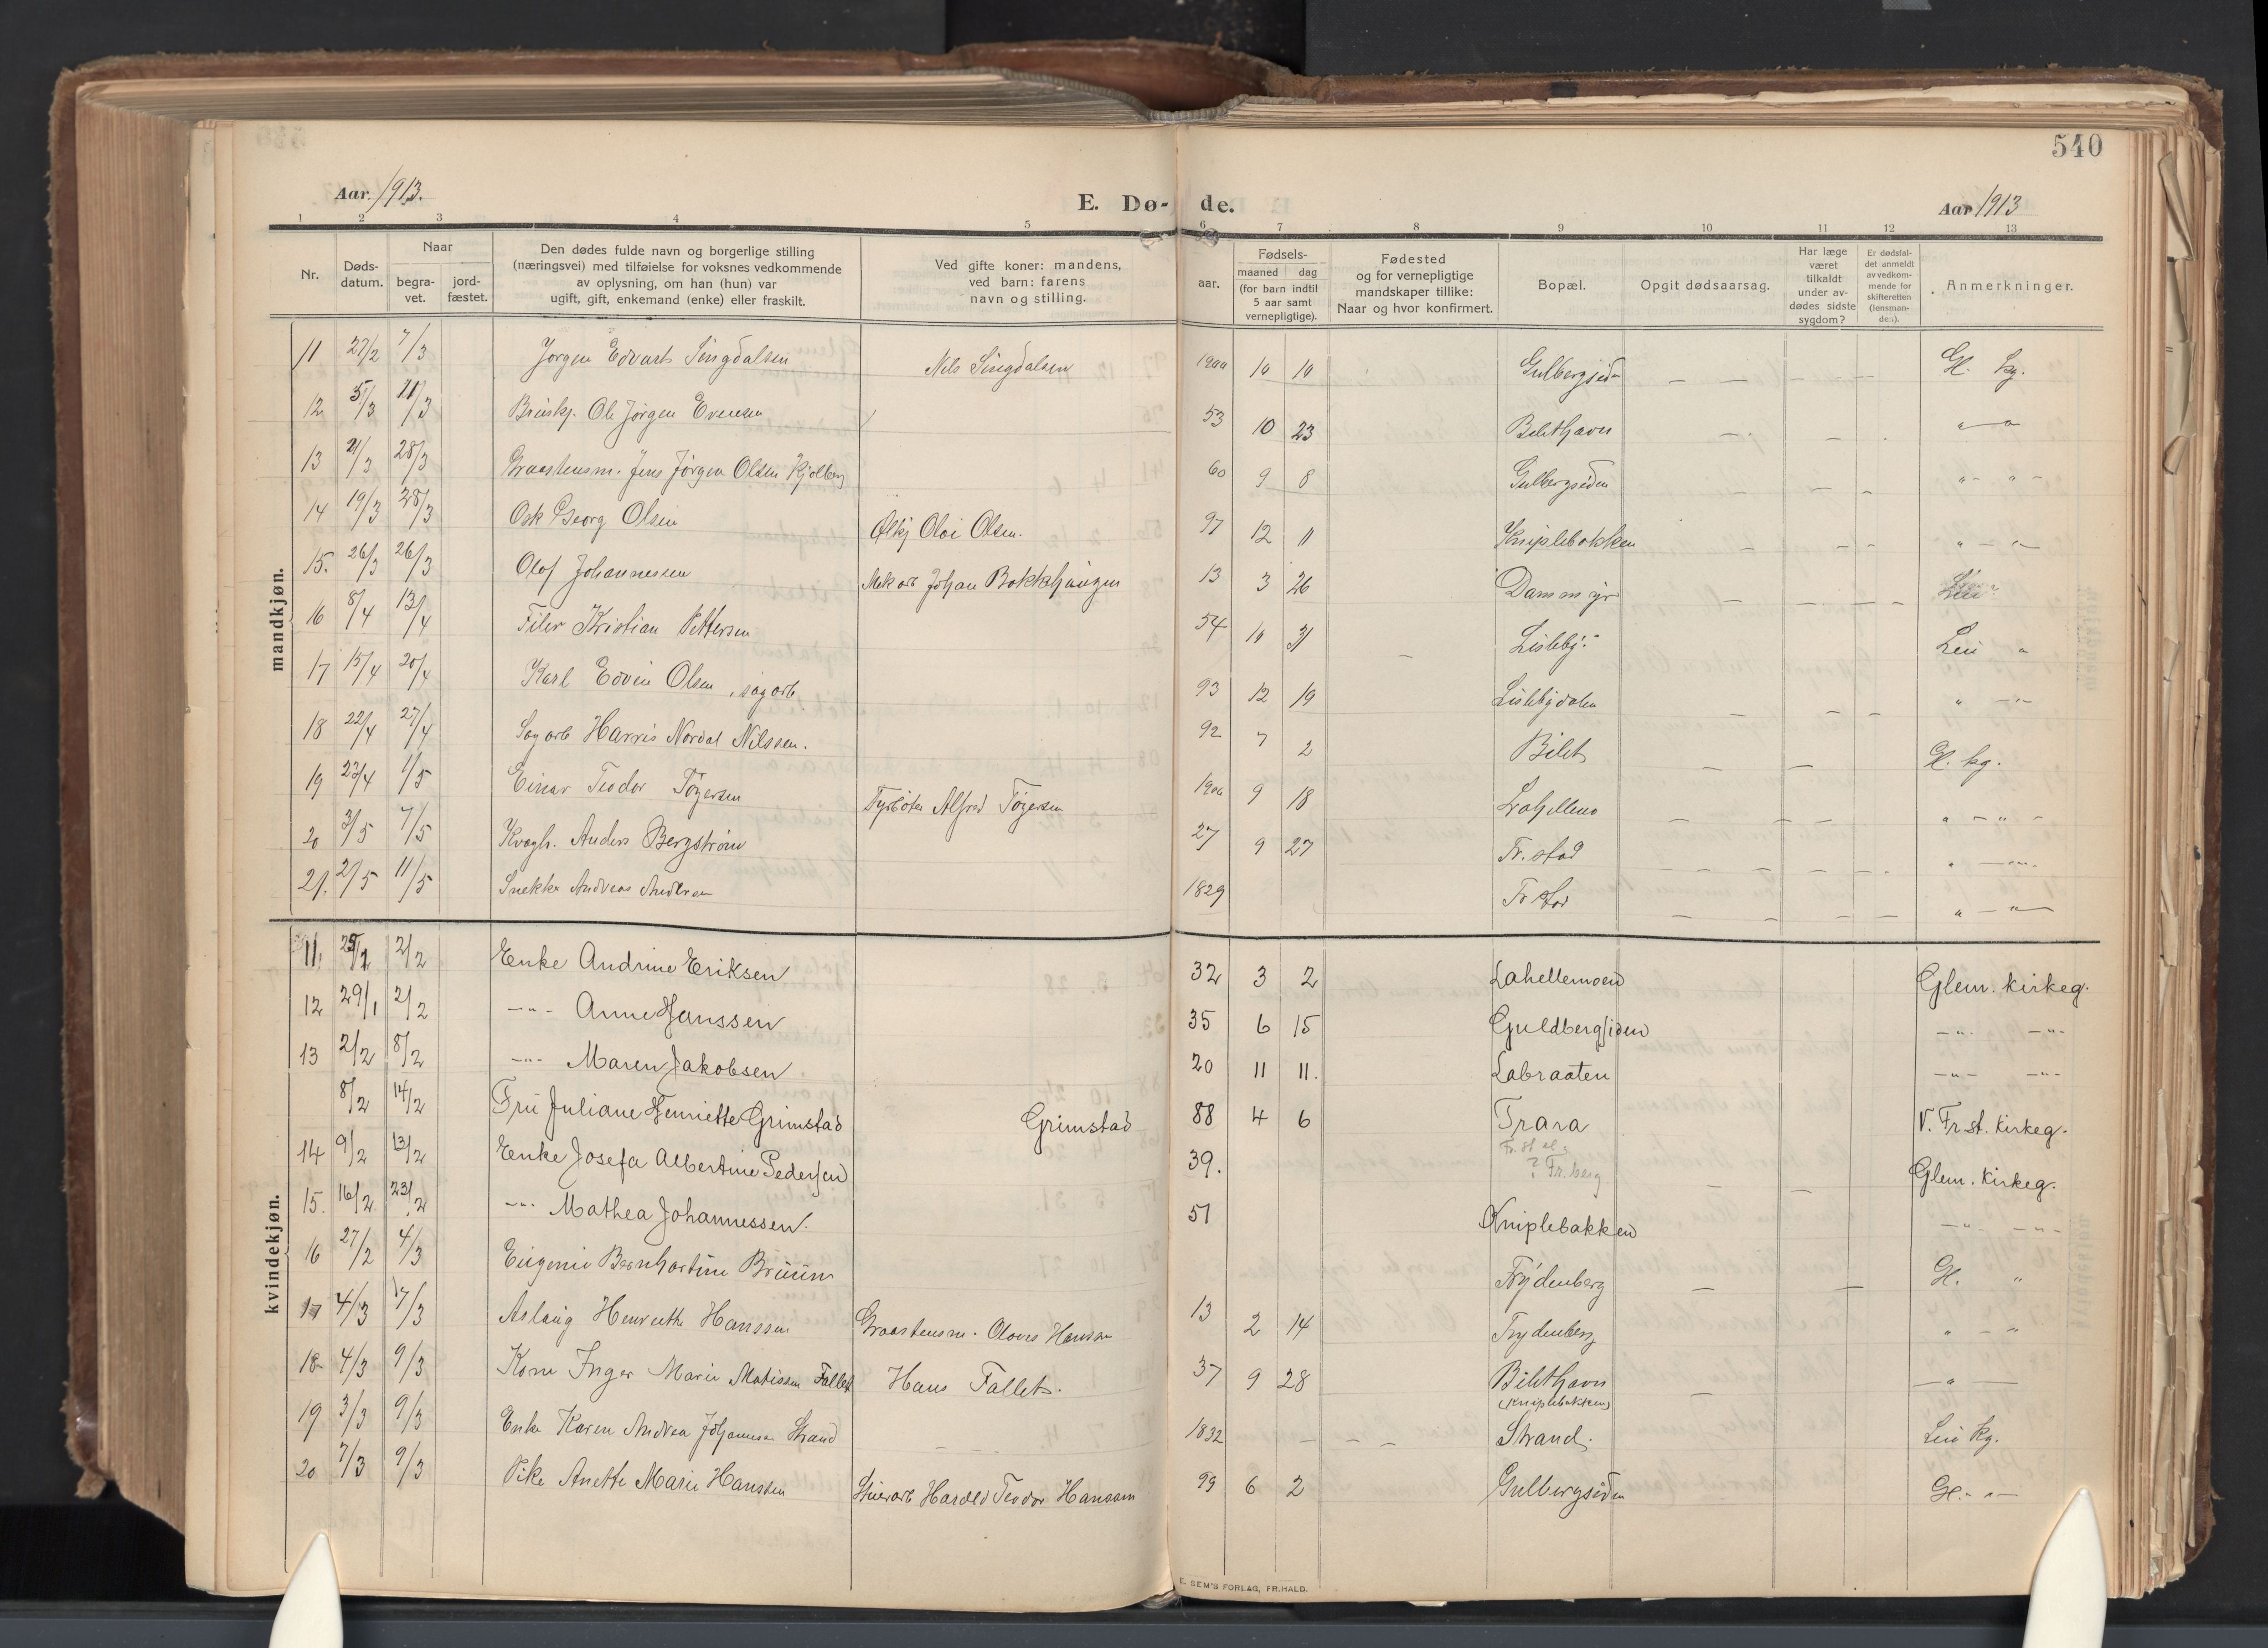 540
Aar 1913.
E. Dø- de.
Aar 1913
1 2 3 4 5 6 7 8 9 10 11 12 13
Nr.
Døds-
datum.
Naar
begra-
vet.
jord-
fæstet.
Den dødes fulde navn og borgerlige stilling
(næringsvei) med tilføielse for voksnes vedkommende
av oplysning, om han (hun) var
ugift, gift, enkemand (enke) eller fraskilt.
Ved gifte koner: mandens,
ved barn: farens
navn og stilling.
Fødsels-
aar.
maaned dag
(for barn indtil
5 aar samt
vernepligtige).
Fødested
og for vernepligtige
mandskaper tillike:
Naar og hvor konfirmert.
Bopæl.
Opgit dødsaarsag.
Har læge
været
tilkaldt
under av-
dødes sidste
sygdom?
Er dødsfal-
det anmeldt
av vedkom-
mende for
skifteretten
(lensman-
den).
Anmerkninger.
mandkjøn.
11 27/2 7/3 Jørgen Edvart Singdalsen Nils Singdalsen 1900 10 10 Gulbergsiden — — — — — Gl. kg.
12 5/3 11/3 Ole Jørgen Evensen 53 10 23 Bilethavn — — " — "
13 21/3 28/3 Graastensm. Jens Jørgen Olsen Kjølberg 60 9 8 Gulbergsiden — — — " — " —
14 19/3 28/3 Osk Georg Olsen Olai Olsen. 97 12 11 Kniplebakken — — — " — "
15. 26/3 26/3 Olaf Johannessen Mek arb Johan Bakkehaugen 13 3 26 Dammyr — — — — Leie
16 8/4 13/4 Filer Kristian Pettersen 54 10 31 — Lisleby. Leie "
17 15/4 20/4 Karl Edvin Olsen, sagarb. 93 12 19 Lislebydalen — — — " — " —
18 22/4 27/4 Sagarb Harris Nordal Nilssen. 92 7 2 Bilet — — Gl. kg.
19 23/4 1/5 Einar Teodor Tøgersen Fyrbøter Alfred Tøgersen 1900 9 18 Lahellmo — — — " — " —
20 3/5 7/5 Anders Bergstrøm 27 9 27 Fr.stad — — — — " — " —
21. 2/5 11/5 Snekker Andreas Andersen 1829 Fr stad — — — — " — " —
kvindekjøn.
11. 25/1 2/2 Enke Andrine Eriksen 32 3 2 Lahellemoen Glem. kirkeg.
12 29/1 2/2 —"— Anne Hanssen 35 6 15 Guldbergsiden —"— —"—
13 2/2 8/2 —"— Maren Jakobsen 20 11 11. Labraaten —"— —"—
8/2 14/2 Fru Juliane Henriette Grimstad Grimstad 88 4 6 Trara V. Fr.st. Kirkeg.
14 9/2 13/2 Enke Josefa Albertine Pedersen 39. Fr.st el.
? Fr.berg — — Glem. Kirkeg.
15. 16/2 23/2 —"— Mathea Johannessen. 51 Kniplebakken —"— —"—
16 27/2 4/3 Eugenie Bernhardine Bruun Frydenberg — — Gl. "
17 4/3 7/3 Aslaug Henriette Hanssen Graastensm. Olaves Hanssen 13 2 14 Frydenberg " — "
18 4/3 9/3 Kone Inger Marie Matissen Fallet Hans Fallet. 37 9 28 Bilethavn
(Kniplebakken) — — " —
19 3/3 9/3 Enke Karen Andrea Johannesen Strand — — — 1832 — — — Strand. Leie kg.
20 7/3 9/3 Pike Anette Marie Hanssen Harald Teodor Hanssen 99 6 2 Gulbergsiden Gl. — " —
E. SEM'S FORLAG, FR.HALD.